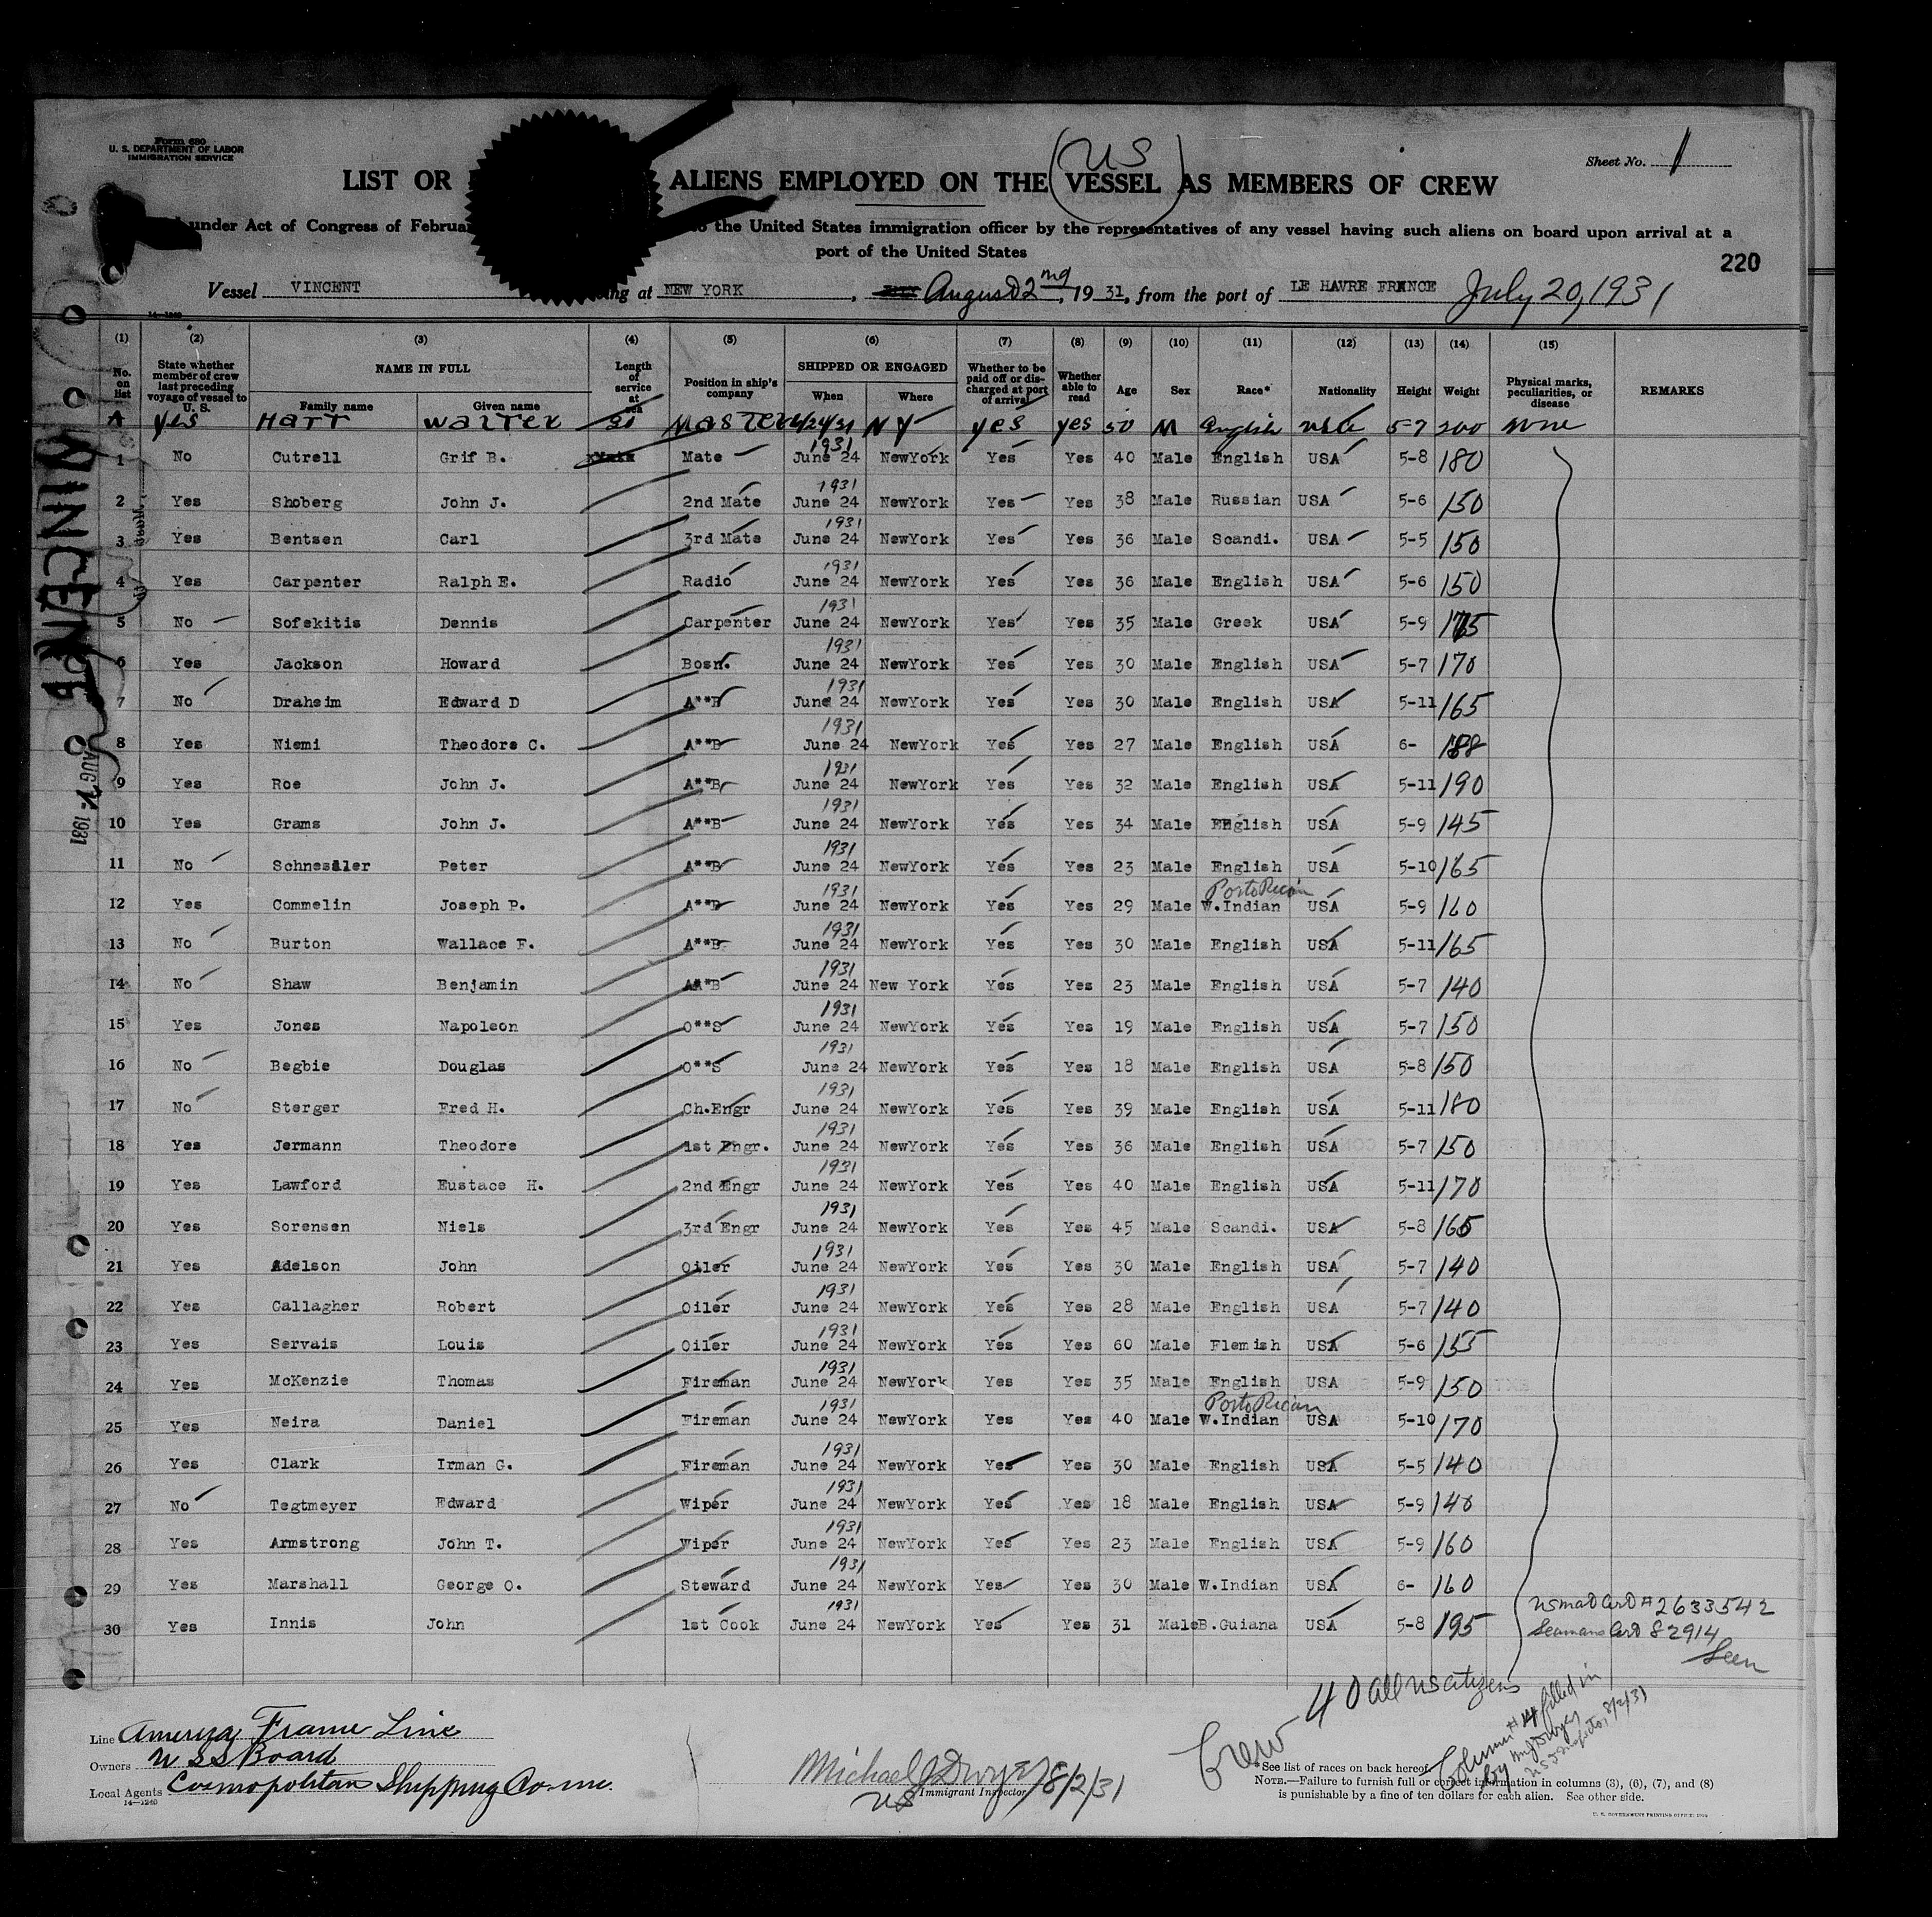 Form 680
U. S. DEPARTMENT OF LABOR
IMMIGRATION SERVICE
Sheet No. 1
(US)
LIST OR ALIENS EMPLOYED ON THE VESSEL AS MEMBERS OF CREW
under Act of Congress of Februa to the United States immigration officer by the representatives of any vessel having such aliens on board upon arrival at a
port of the United States
220
Vessel VINCENT ing at NEW YORK, August 2nd, 1931, from the port of LE HAVRE FRANCE July 20, 1931
14-1240
(1) (2) (3) (4) (5) (6) (7) (8) (9) (10) (11) (12) (13) (14) (15)
No. on list State whether member of crew last preceding voyage of vessel to U. S. NAME IN FULL Family name Given name Length of service at sea Position in ship's company SHIPPED OR ENGAGED When Where Whether to be paid off or discharged at port of arrival Whether able to read Age Sex Race* Nationality Height Weight Physical marks, peculiarities, or disease REMARKS
A Yes Hart Walter Master 6/24/31 NY yes yes 50 M English USA 5-7 200 none
1 No Cutrell Grif B. Mate June 24 1931 NewYork Yes Yes 40 Male English USA 5-8 180
2 Yes Shoberg John J. 2nd Mate June 24 1931 NewYork Yes Yes 38 Male Russian USA 5-6 150
3 Yes Bentsen Carl 3rd Mate June 24 1931 NewYork Yes Yes 36 Male Scandi. USA 5-5 150
4 Yes Carpenter Ralph E. Radio June 24 1931 NewYork Yes Yes 36 Male English USA 5-6 150
5 No Sofekitis Dennis Carpenter June 24 1931 NewYork Yes Yes 35 Male Greek USA 5-9 175
6 Yes Jackson Howard Bosn. June 24 1931 NewYork Yes Yes 30 Male English USA 5-7 170
7 No Draheim Edward D A**B June 24 1931 NewYork Yes Yes 30 Male English USA 5-11 165
8 Yes Niemi Theodore C. A**B June 24 1931 NewYork Yes Yes 27 Male English USA 6- 188
9 Yes Roe John J. A**B June 24 1931 NewYork Yes Yes 32 Male English USA 5-11 190
10 Yes Grams John J. A**B June 24 1931 NewYork Yes Yes 34 Male English USA 5-9 145
11 No Schnesdler Peter A**B June 24 1931 NewYork Yes Yes 23 Male English USA 5-10 165
12 Yes Commelin Joseph P. A**B June 24 1931 NewYork Yes Yes 29 Male W.Indian Porto Rican USA 5-9 160
13 No Burton Wallace F. A**B June 24 1931 NewYork Yes Yes 30 Male English USA 5-11 165
14 No Shaw Benjamin A**B June 24 1931 New York Yes Yes 23 Male English USA 5-7 140
15 Yes Jones Napoleon O**S June 24 1931 NewYork Yes Yes 19 Male English USA 5-7 150
16 No Begbie Douglas O**S June 24 1931 NewYork Yes Yes 18 Male English USA 5-8 150
17 No Sterger Fred H. Ch.Engr June 24 1931 NewYork Yes Yes 39 Male English USA 5-11 180
18 Yes Jermann Theodore 1st Engr. June 24 1931 NewYork Yes Yes 36 Male English USA 5-7 150
19 Yes Lawford Eustace H. 2nd Engr June 24 1931 NewYork Yes Yes 40 Male English USA 5-11 170
20 Yes Sorensen Niels 3rd Engr June 24 1931 NewYork Yes Yes 45 Male Scandi. USA 5-8 165
21 Yes Adelson John Oiler June 24 1931 NewYork Yes Yes 30 Male English USA 5-7 140
22 Yes Gallagher Robert Oiler June 24 1931 NewYork Yes Yes 28 Male English USA 5-7 140
23 Yes Servais Louis Oiler June 24 1931 NewYork Yes Yes 60 Male Flemish USA 5-6 155
24 Yes McKenzie Thomas Fireman June 24 1931 NewYork Yes Yes 35 Male English USA 5-9 150
25 Yes Neira Daniel Fireman June 24 1931 NewYork Yes Yes 40 Male W.Indian Porto Rican USA 5-10 170
26 Yes Clark Irman G. Fireman June 24 1931 NewYork Yes Yes 30 Male English USA 5-5 140
27 No Tegtmeyer Edward Wiper June 24 1931 NewYork Yes Yes 18 Male English USA 5-9 140
28 Yes Armstrong John T. Wiper June 24 1931 NewYork Yes Yes 23 Male English USA 5-9 160
29 Yes Marshall George O. Steward June 24 1931 NewYork Yes Yes 30 Male W.Indian USA 6- 160
30 Yes Innis John 1st Cook June 24 1931 NewYork Yes Yes 31 Male B.Guiana USA 5-8 195
# 2633542
Seamans Cert 82914
Seen
VINCENT
AUG 2 1931
Crew 40 all US citizens
Column #14 filled in by
US Inspector, 8/2/31
Line America France Line
Owners U S S Board
Local Agents Cosmopolitan Shipping Co inc.
14-1240
Michael J Dwyer 8/2/31
US Immigrant Inspector
* See list of races on back hereof.
NOTE.—Failure to furnish full or correct information in columns (3), (6), (7), and (8)
is punishable by a fine of ten dollars for each alien. See other side.
U. S. GOVERNMENT PRINTING OFFICE